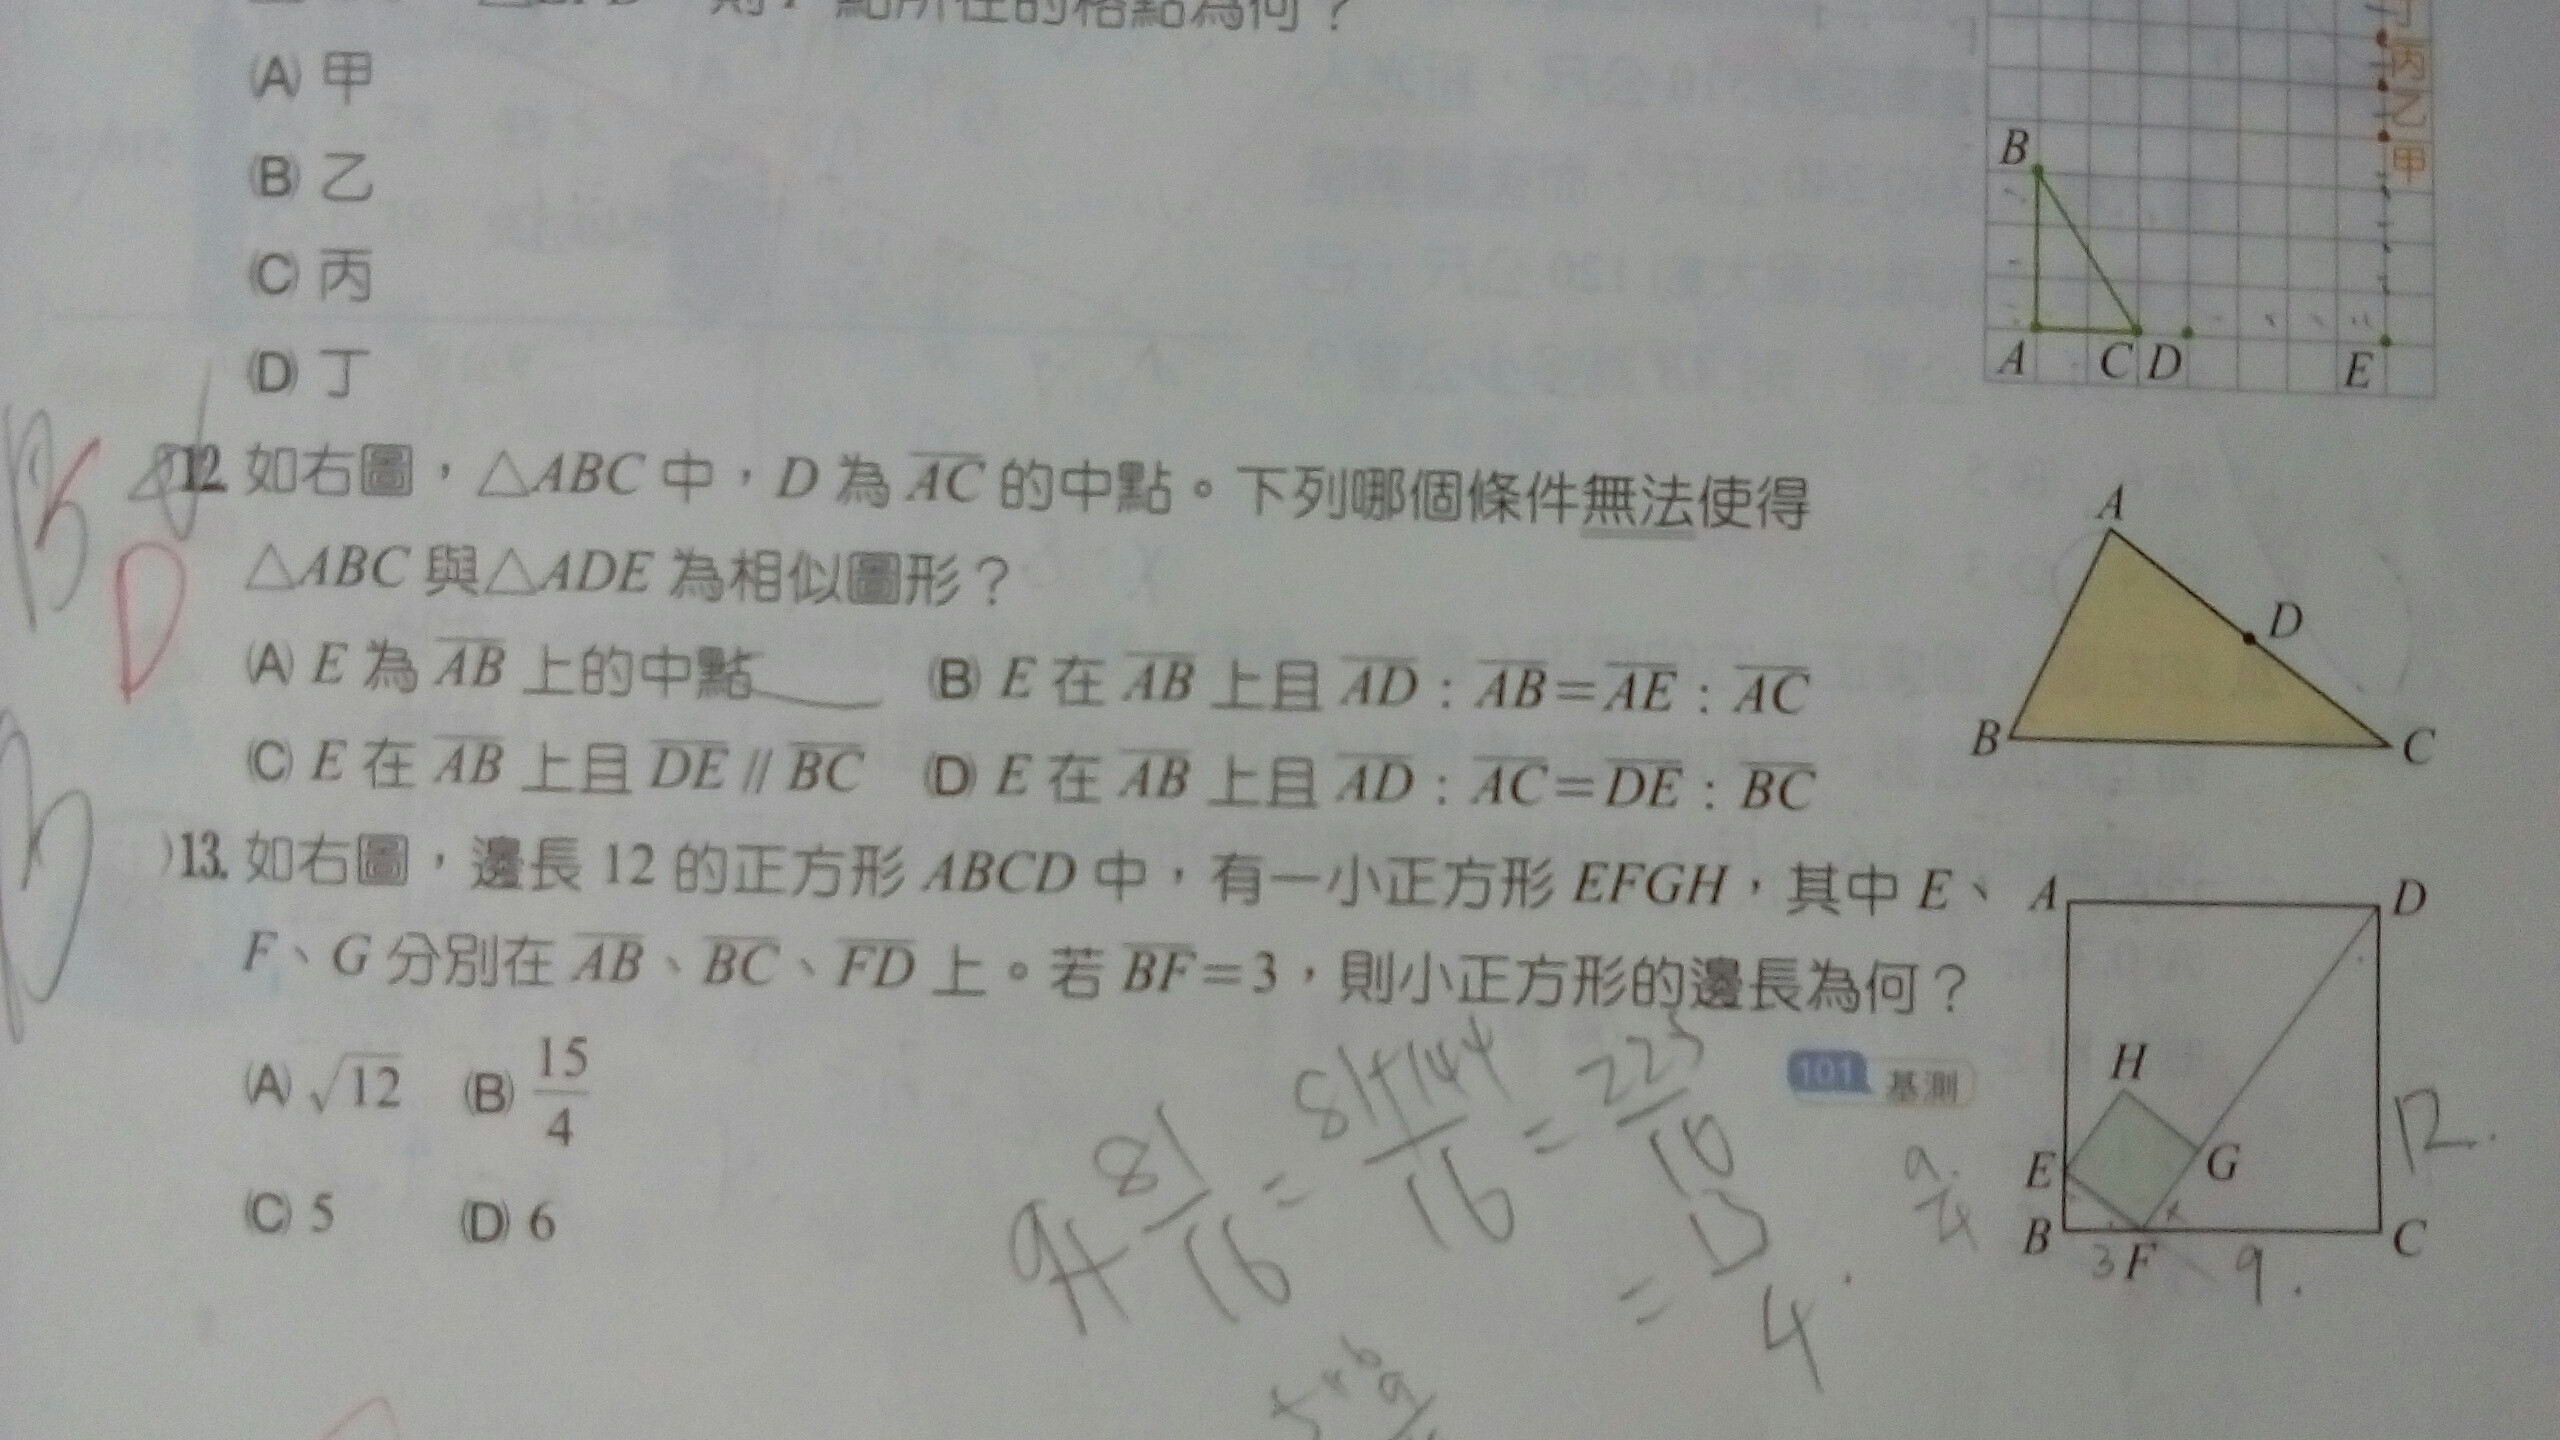 點所在的格點為何?
(A) 甲
(B) 乙
(C) 丙
(D) 丁
丙
乙
甲
B
A C D E
B
D
12. 如右圖,△ABC 中,D 為 AC 的中點。下列哪個條件無法使得
△ABC 與△ADE 為相似圖形?
(A) E 為 AB 上的中點 (B) E 在 AB 上且 AD : AB = AE : AC
(C) E 在 AB 上且 DE // BC (D) E 在 AB 上且 AD : AC = DE : BC
A
D
B C
B
)13. 如右圖,邊長 12 的正方形 ABCD 中,有一小正方形 EFGH,其中 E、
F、G 分別在 AB、BC、FD 上。若 BF = 3,則小正方形的邊長為何?
101 基測
(A) √12 (B) 15/4
(C) 5 (D) 6
A D
H
E G
B F C
3 9.
12.
9/4
9+ 81/16 = 81+144/16 = 225/16
= 15/4